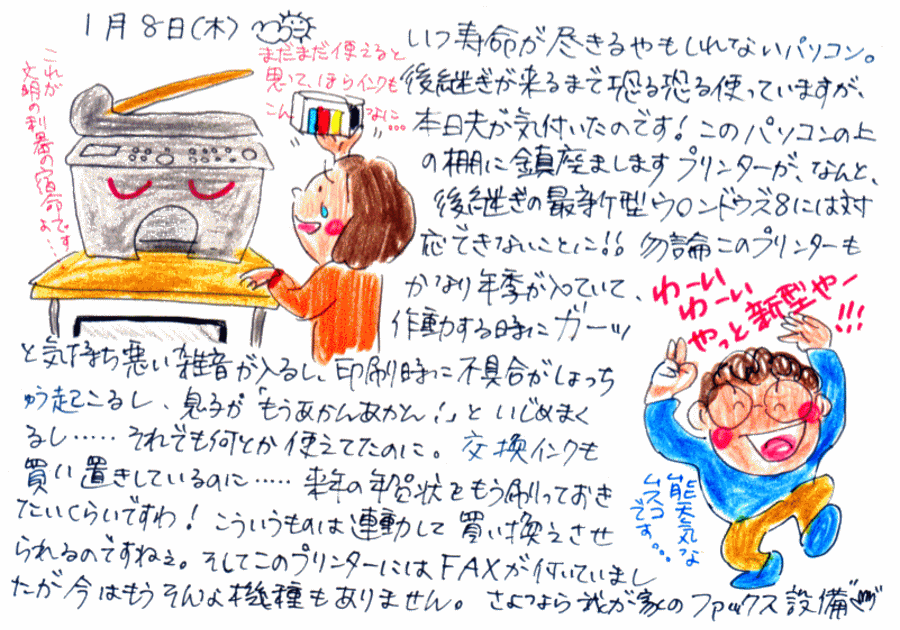 1月8日(木)
いつ寿命が尽きるやもしれないパソコン。
後継ぎが来るまで恐る恐る使っていますが、
本日夫が気付いたのです！このパソコンの上
の棚に鎮座まします プリンターが、なんと、
後継ぎの最新型ウィンドウズ8には対
応できないことに!! 勿論このプリンターも
かなり年季が入っていて、
作動する時に ガーッ
と気持ち悪い雑音が入るし、印刷時に不具合がしょっち
ゅう起こるし、息子が「もうあかんあかん！」といじめまく
るし…… それでも何とか使えてたのに。交換インクも
買い置きしているのに…… 来年の年賀状をもう刷っておき
たいくらいですわ！こういうものは連動して買い換えさせ
られるのですねぇ。そしてこのプリンターにはFAXが付いていまし
たが今はもうそんな機種もありません。さよなら我が家のファックス設備
まだまだ使えると
思って、ほらインクも
こんなに…
これが
文明の利器の宿命です
よ…
わーい
わーい
やっと新型やー
!!!
能天気な
ムスコ
です。。。